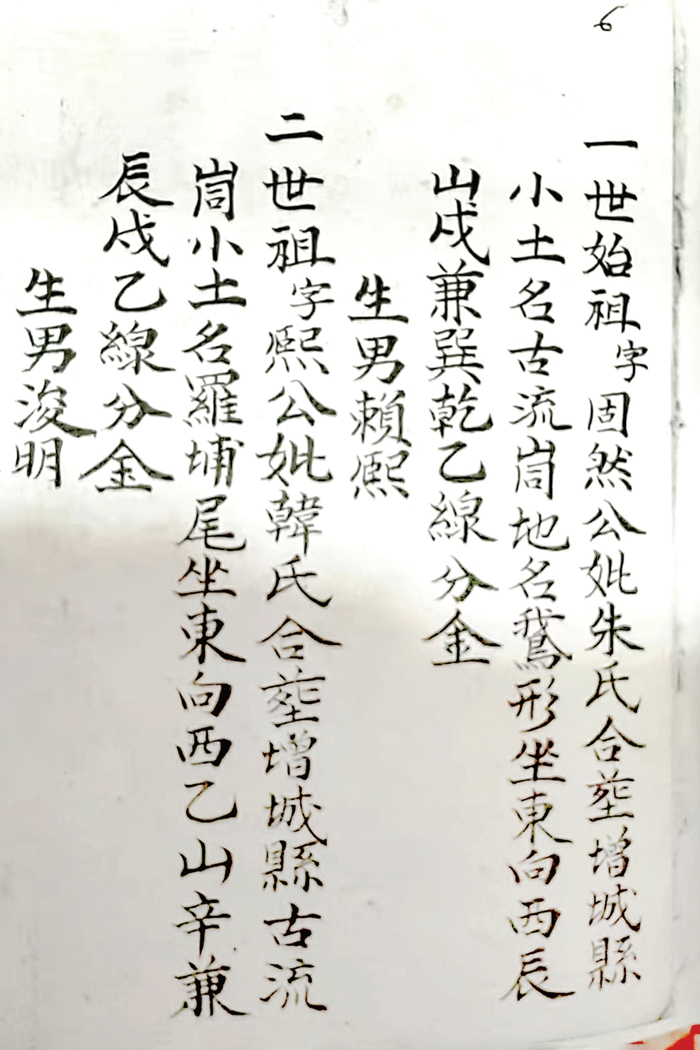 6
一世始祖字固然公妣朱氏合塟增城縣
小土名古流峝地名鵞形坐東向西辰
山戍兼巽乾乙線分金
生男賴熙
二世祖字熙公妣韓氏合塟增城縣古流
峝小土名羅埔尾坐東向西乙山辛兼
辰戍乙線分金
生男浚明